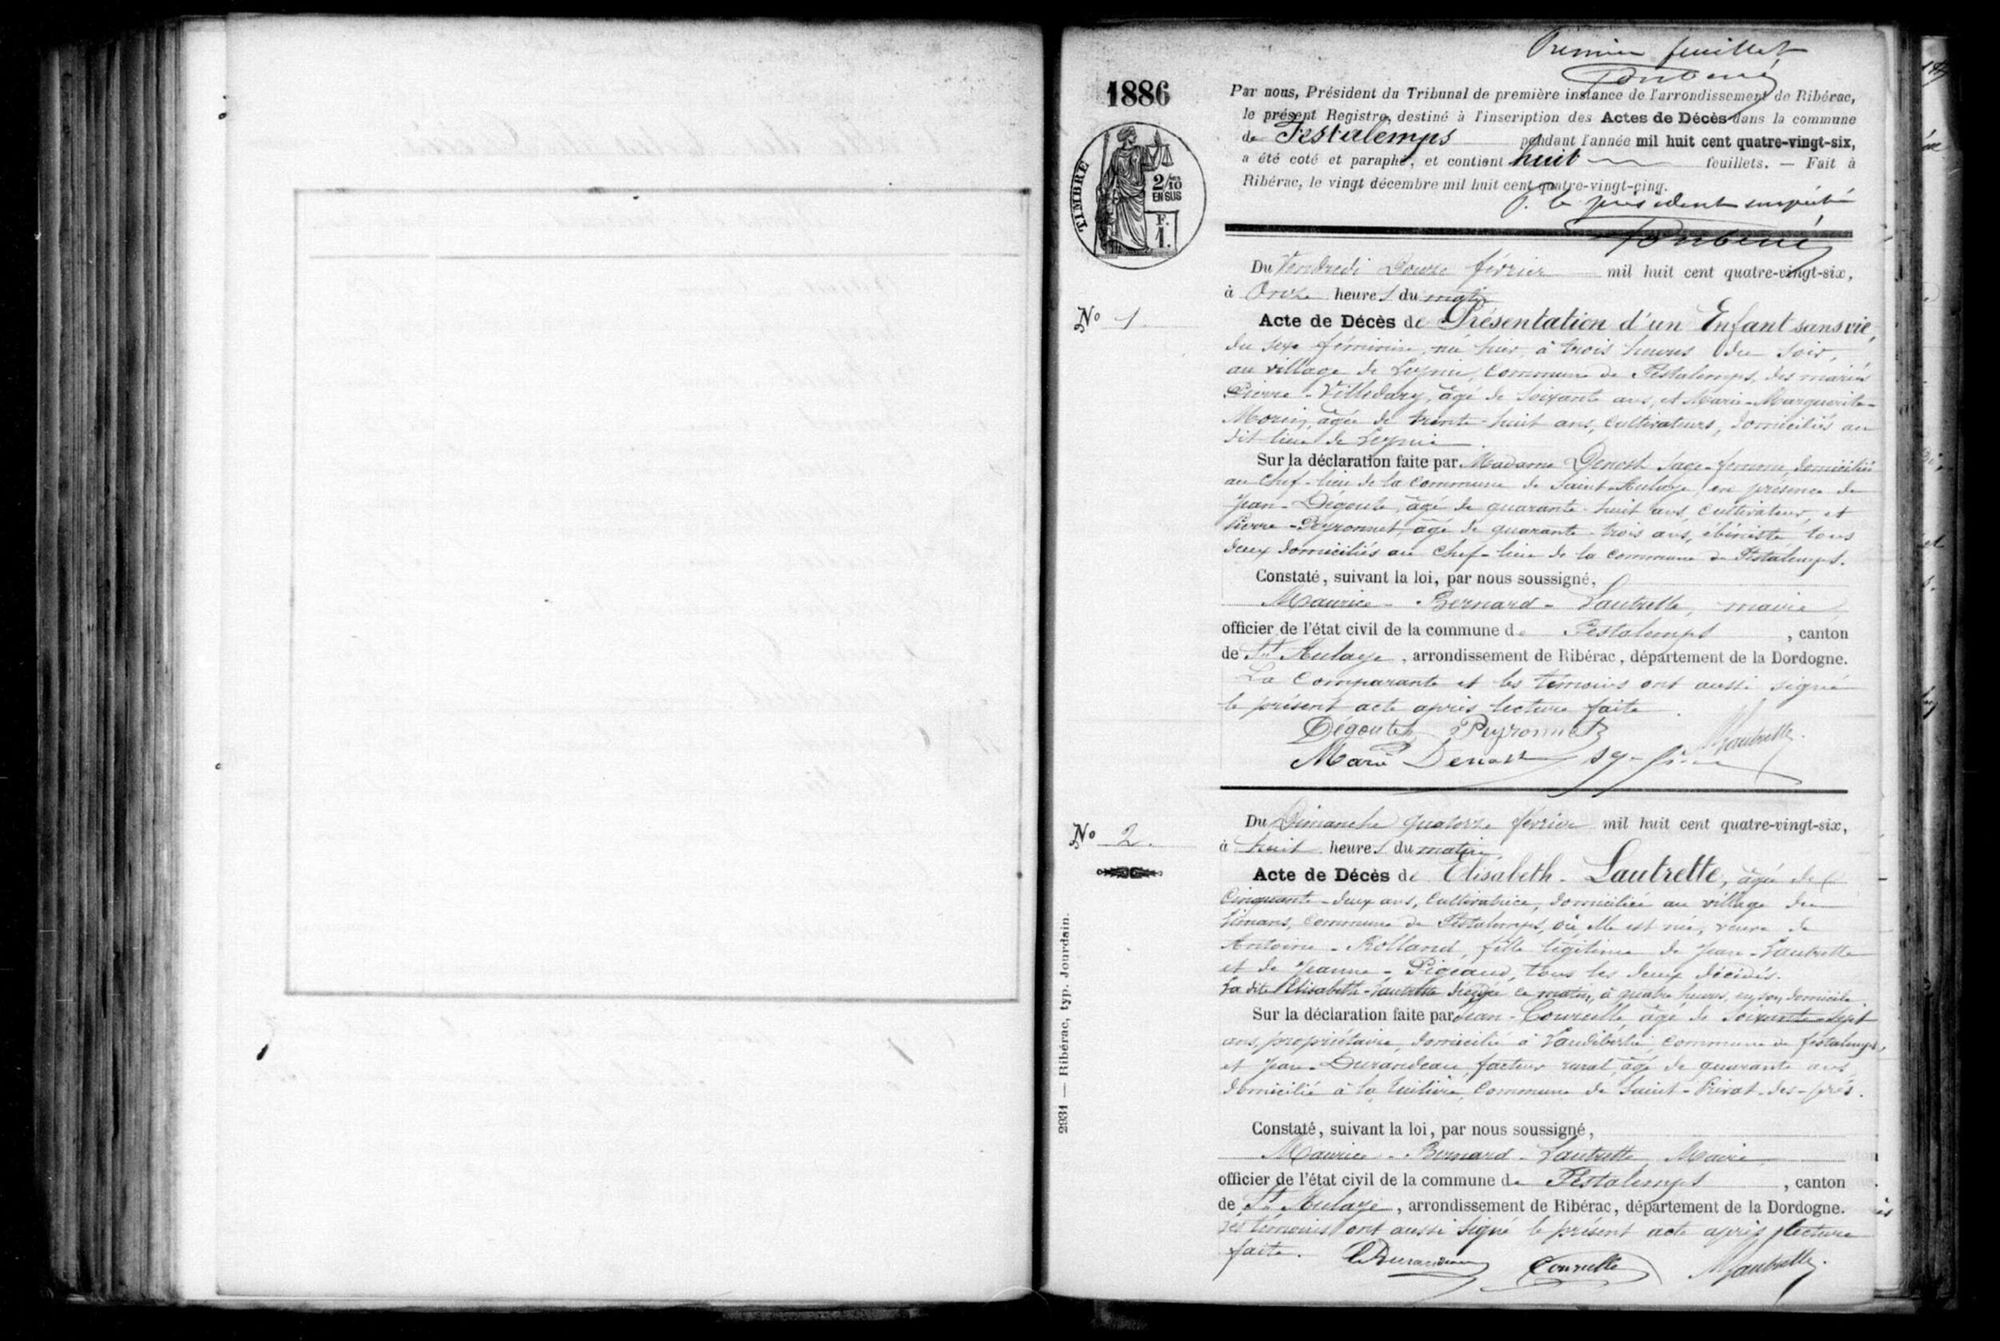 Premier feuillet
1886
Par nous, Président du Tribunal de première instance de l'arrondissement de Ribérac,
le présent Registre, destiné à l'inscription des Actes de Décès dans la commune
de Festalemps pendant l'année mil huit cent quatre-vingt-six,
a été coté et paraphé, et contient huit feuillets. — Fait à
Ribérac, le vingt décembre mil huit cent quatre-vingt-cinq.
P. le président empêché
TIMBRE
2/10
EN SUS
F.
1.
Du Vendredi Douze février mil huit cent quatre-vingt-six,
à Onze heures du matin
No 1.
Acte de Décès de Présentation d'un Enfant sans vie,
du sexe féminin, né hier, à trois heures du soir,
au village de commune de Festalemps, des mariés
Pierre - Villedary, âgé de soixante ans, et Marie-Marguerite-
Morin, âgée de trente-huit ans, cultivateurs, domiciliés au
dit lieu de
Sur la déclaration faite par Madame Denost sage-femme, domiciliée
au chef-lieu de la commune de Saint-Aulaye, en présence de
Jean - Dégoute, âgé de quarante-huit ans, cultivateur, et
Pierre - Peyronnet, âgé de quarante-trois ans, ébéniste, tous
deux domiciliés au chef-lieu de la commune de Festalemps.
Constaté, suivant la loi, par nous soussigné,
Maurice - Bernard - Lautrette, maire
officier de l'état civil de la commune de Festalemps, canton
de St Aulaye, arrondissement de Ribérac, département de la Dordogne.
La comparante et les témoins ont aussi signé
le présent acte après lecture faite.
Dégoute Peyronnet Lautrette
Marie Denost sge fme
No 2.
Du Dimanche quatorze février mil huit cent quatre-vingt-six,
à huit heures du matin
Acte de Décès de Elisabeth - Lautrette, âgée de
Cinquante-deux ans, cultivatrice, domiciliée au village de
commune de Festalemps, où elle est née, veuve de
Antoine - Rolland, fille légitime de Jean - Lautrette
et de Jeanne - Pigeaud, tous les deux décédés.
La dite Elisabeth - Lautrette décédée ce matin, à quatre heures, en son domicile.
Sur la déclaration faite par Jean - Courcelle, âgé de soixante-sept
ans, propriétaire, domicilié à Laudibertie, commune de festalemps,
et Jean - Durandeau, facteur rural, âgé de quarante ans
domicilié à la Tuilière, commune de Saint-Privat-des-prés.
2931 — Ribérac, typ. Jourdain.
Constaté, suivant la loi, par nous soussigné,
Maurice - Bernard - Lautrette, Maire
officier de l'état civil de la commune de Festalemps, canton
de St Aulaye, arrondissement de Ribérac, département de la Dordogne.
Les témoins ont aussi signé le présent acte après lecture
faite. Durandeau Courcelle Lautrette